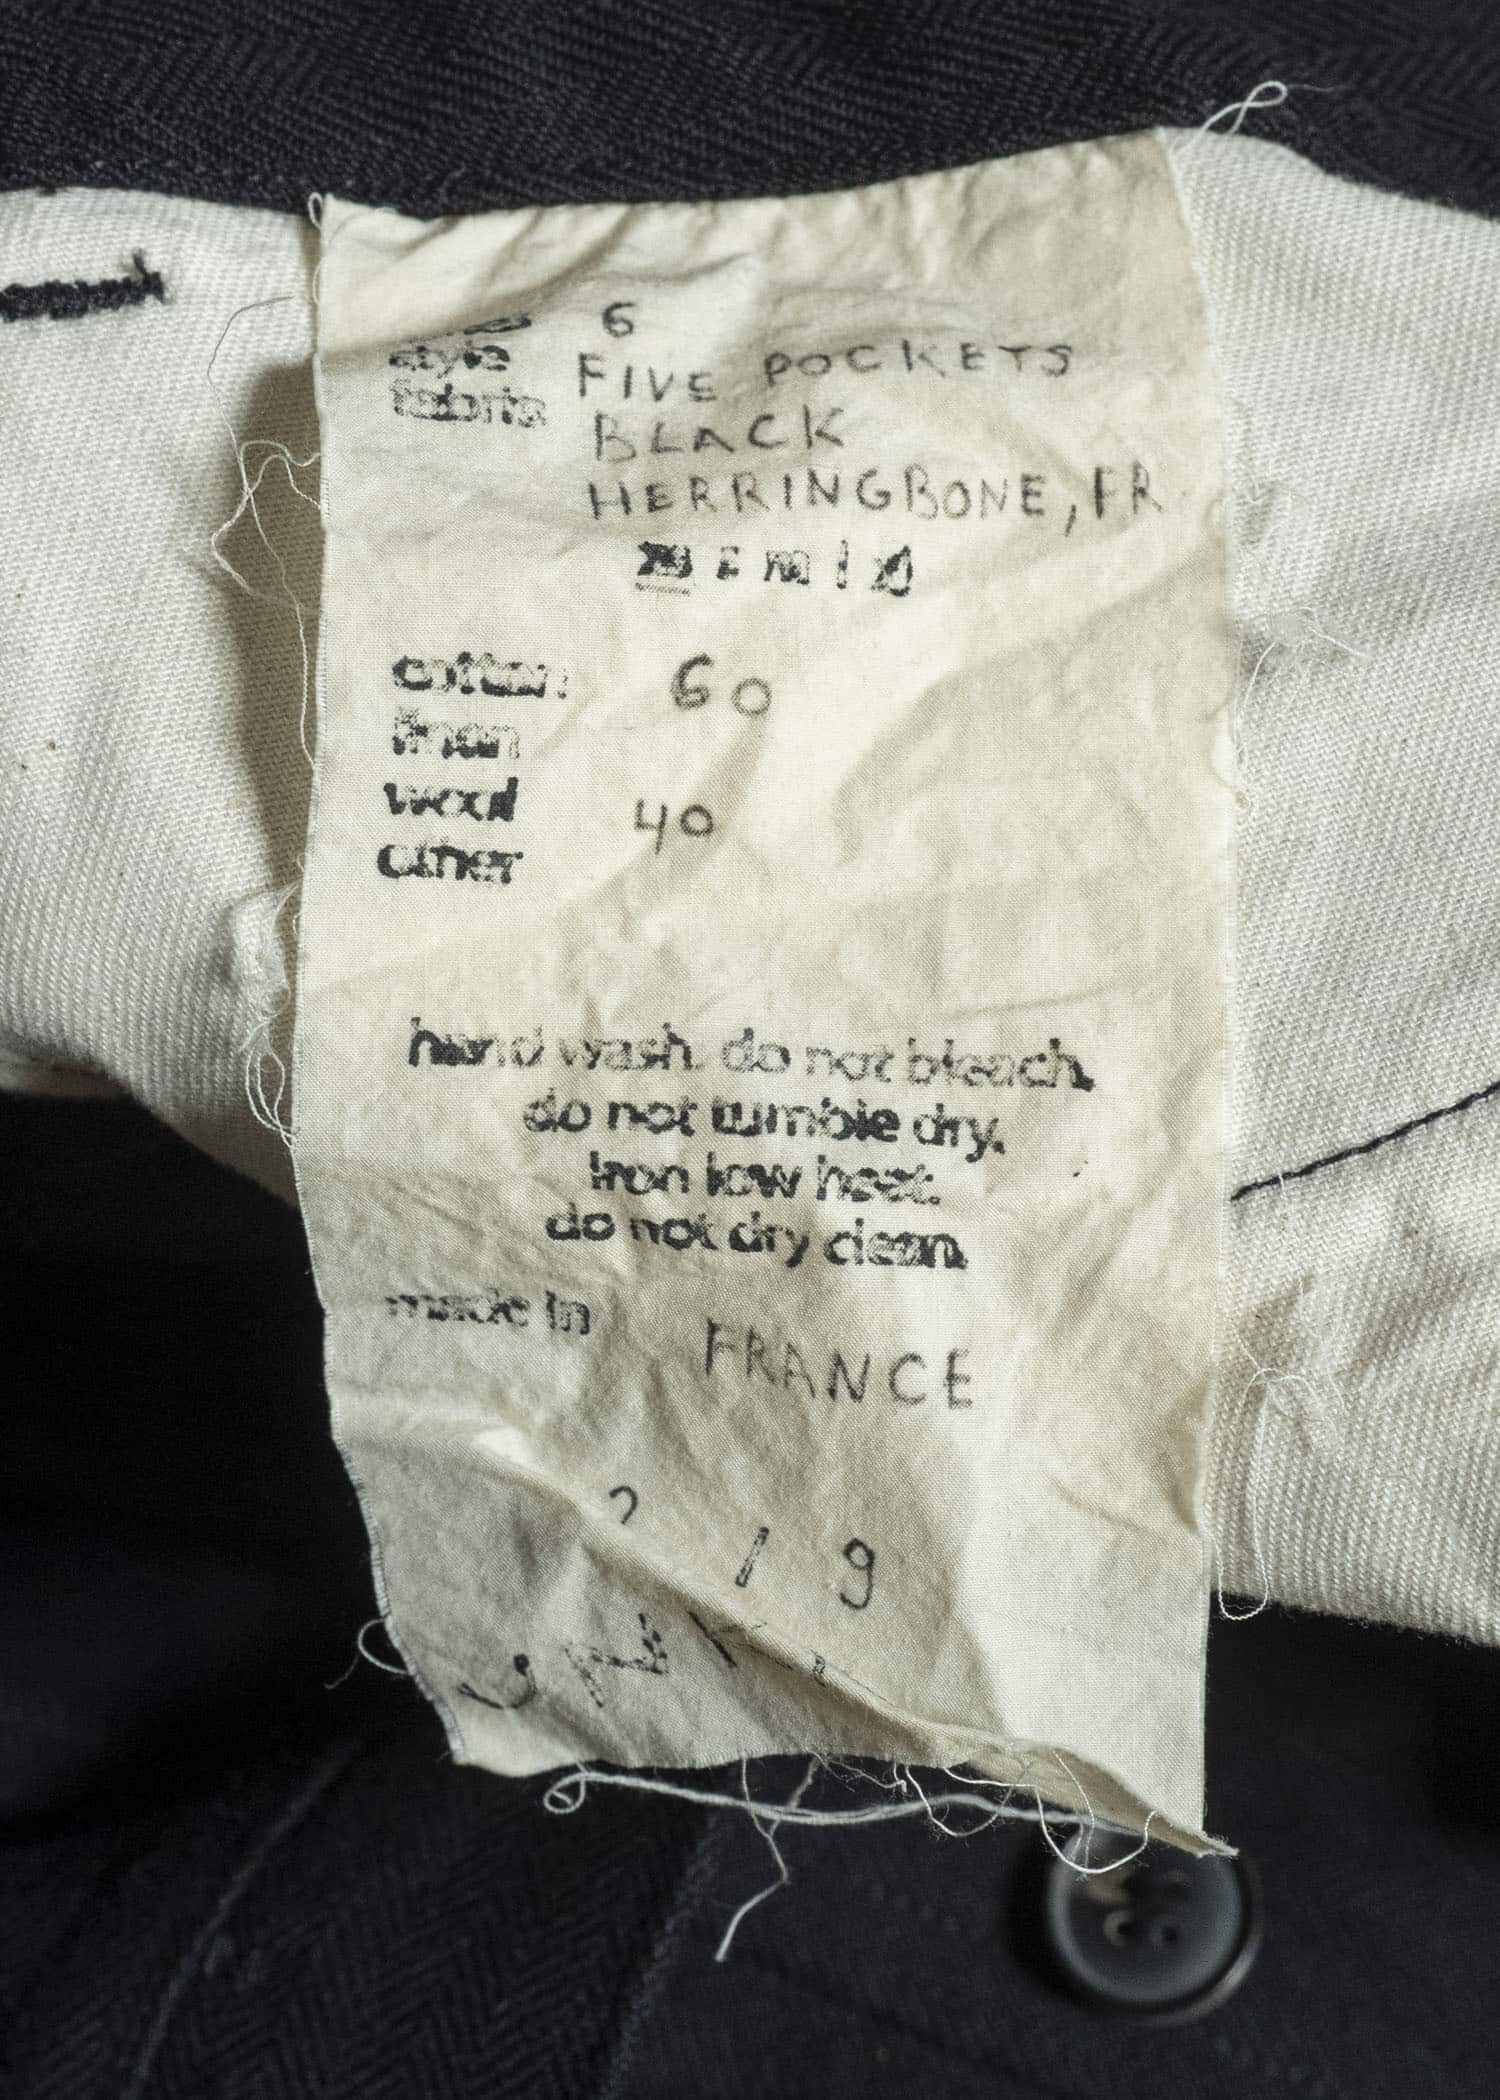 6
style FIVE POCKETS
fabric BLACK
HERRINGBONE, FR
xs s m l xl
cotton: 60
linen
wool 40
other
hand wash. do not bleach.
do not tumble dry.
iron low heat.
do not dry clean.
made in FRANCE
2 1 9